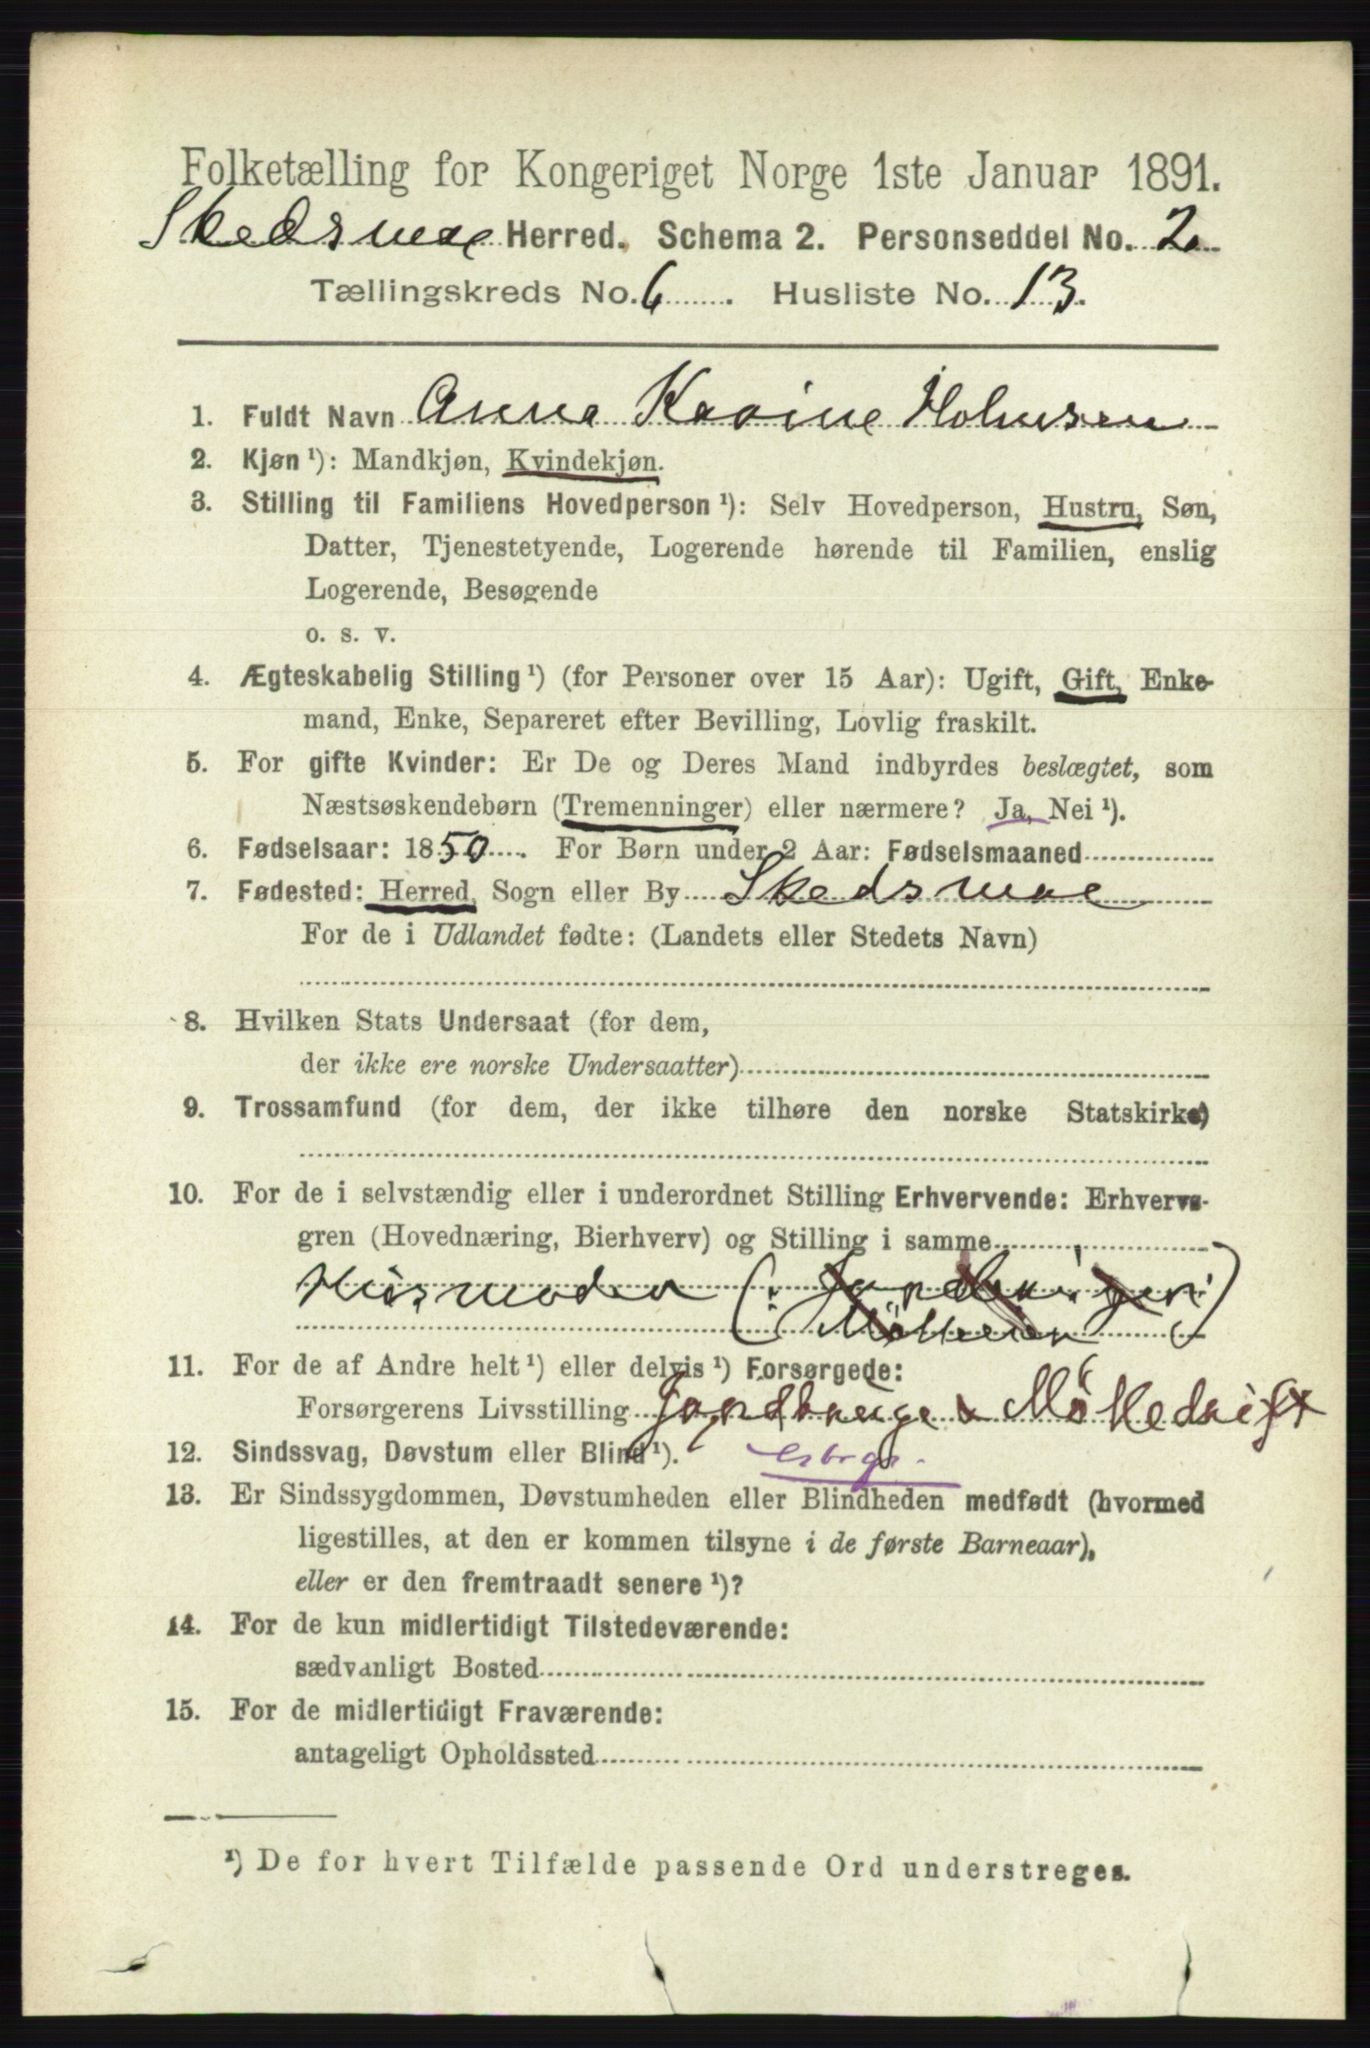 Folketælling for Kongeriget Norge 1ste Januar 1891.
Skedsmoe Herred. Schema 2. Personseddel No. 2.
Tællingskreds No. 6. Husliste No. 13.
1. Fuldt Navn Anna Karine Holmsen
2. Kjøn ¹): Mandkjøn, Kvindekjøn.
3. Stilling til Familiens Hovedperson ¹): Selv Hovedperson, Hustru, Søn,
Datter, Tjenestetyende, Logerende hørende til Familien, enslig
Logerende, Besøgende
o. s. v.
4. Ægteskabelig Stilling ¹) (for Personer over 15 Aar): Ugift, Gift, Enke-
mand, Enke, Separeret efter Bevilling, Lovlig fraskilt.
5. For gifte Kvinder: Er De og Deres Mand indbyrdes beslægtet, som
Næstsøskendebørn (Tremenninger) eller nærmere? Ja, Nei ¹).
6. Fødselsaar: 1850. For Børn under 2 Aar: Fødselsmaaned
7. Fødested: Herred, Sogn eller By Skedsmoe
For de i Udlandet fødte: (Landets eller Stedets Navn)
8. Hvilken Stats Undersaat (for dem,
der ikke ere norske Undersaatter)
9. Trossamfund (for dem, der ikke tilhøre den norske Statskirke)
10. For de i selvstændig eller i underordnet Stilling Erhvervende: Erhvervs-
gren (Hovednæring, Bierhverv) og Stilling i samme
Husmoder (:
11. For de af Andre helt ¹) eller delvis ¹) Forsørgede:
Forsørgerens Livsstilling Jordbruge & Mølledrift
12. Sindssvag, Døvstum eller Blind ¹).
13. Er Sindssygdommen, Døvstumheden eller Blindheden medfødt (hvormed
ligestilles, at den er kommen tilsyne i de første Barneaar),
eller er den fremtraadt senere ¹)?
14. For de kun midlertidigt Tilstedeværende:
sædvanligt Bosted
15. For de midlertidigt Fraværende:
antageligt Opholdssted
¹) De for hvert Tilfælde passende Ord understreges.